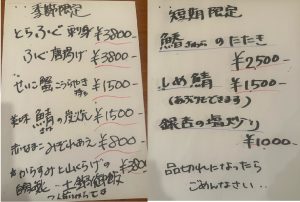 季節限定
とらふぐ 刺身 ¥3800-
ふぐ 唐揚げ ¥3800-
せいこ蟹 こうらやき ¥1500-
鯖の炭火 ¥1500-
赤なまこみぞれあえ ¥800-
からすみと山くらげの
土鍋御飯
短期限定
鰆 さわら のたたき
¥2500-
しめ鯖 ¥1500-
(あぶりもできます)
銀杏の塩炒り
¥1000-
品切れになったら
ごめんなさい...